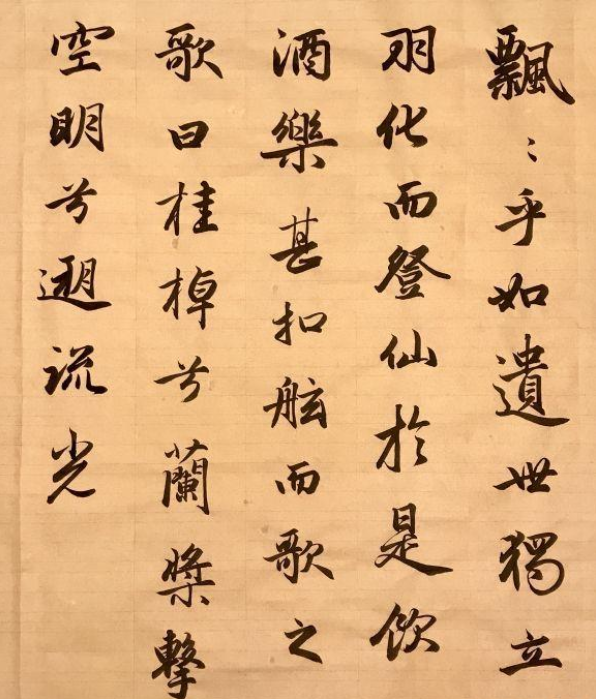 飄〻乎如遺世獨立
羽化而登仙於是飲
酒樂甚扣舷而歌之
歌曰桂棹兮蘭槳擊
空明兮遡流光